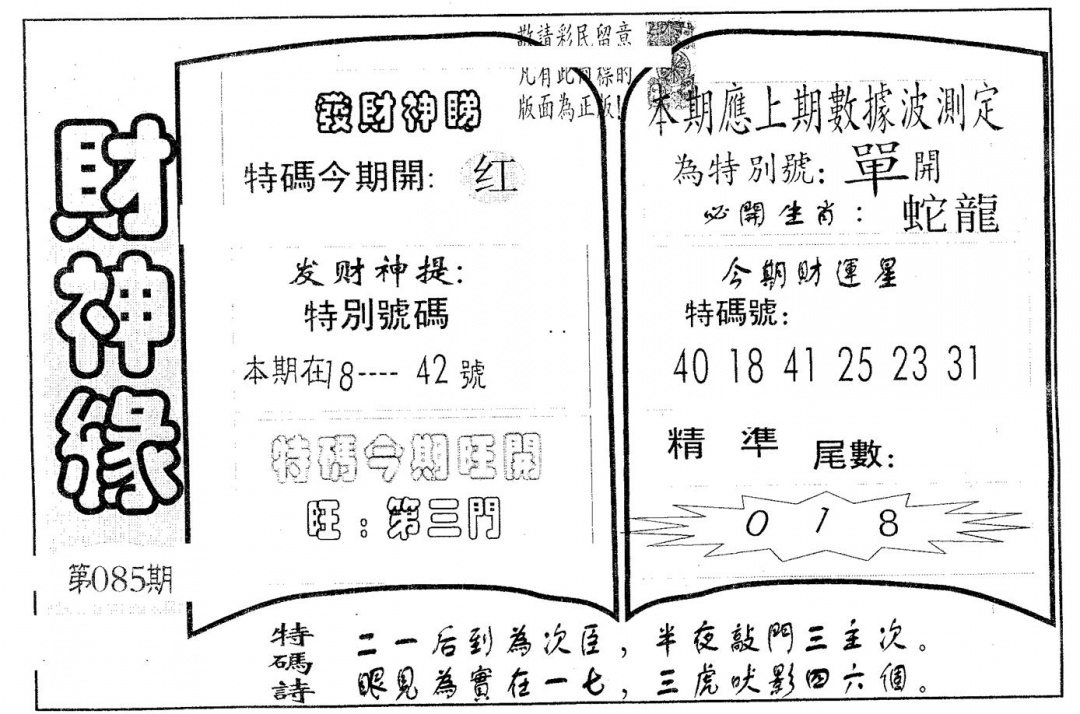 財神緣
第085期
敬請彩民留意
凡有此同樣的
版面為正版!
發財神睇
特碼今期開: 红
发财神提:
特別號碼
本期在18---- 42號
特碼今期旺開
旺:第三門
本期應上期數據波測定
為特別號: 單開
必開生肖: 蛇龍
今期財運星
特碼號:
40 18 41 25 23 31
精準 尾數:
0 1 8
特碼詩
二一后到為次臣,半夜敲門三主次。
眼見為實在一七,三虎吠影四六個。